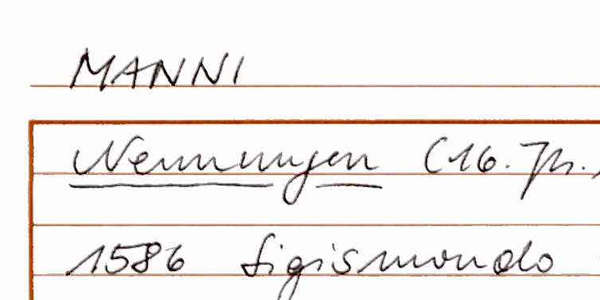 MANNI
Nennungen (16. Jh.)
1586 Sigismondo